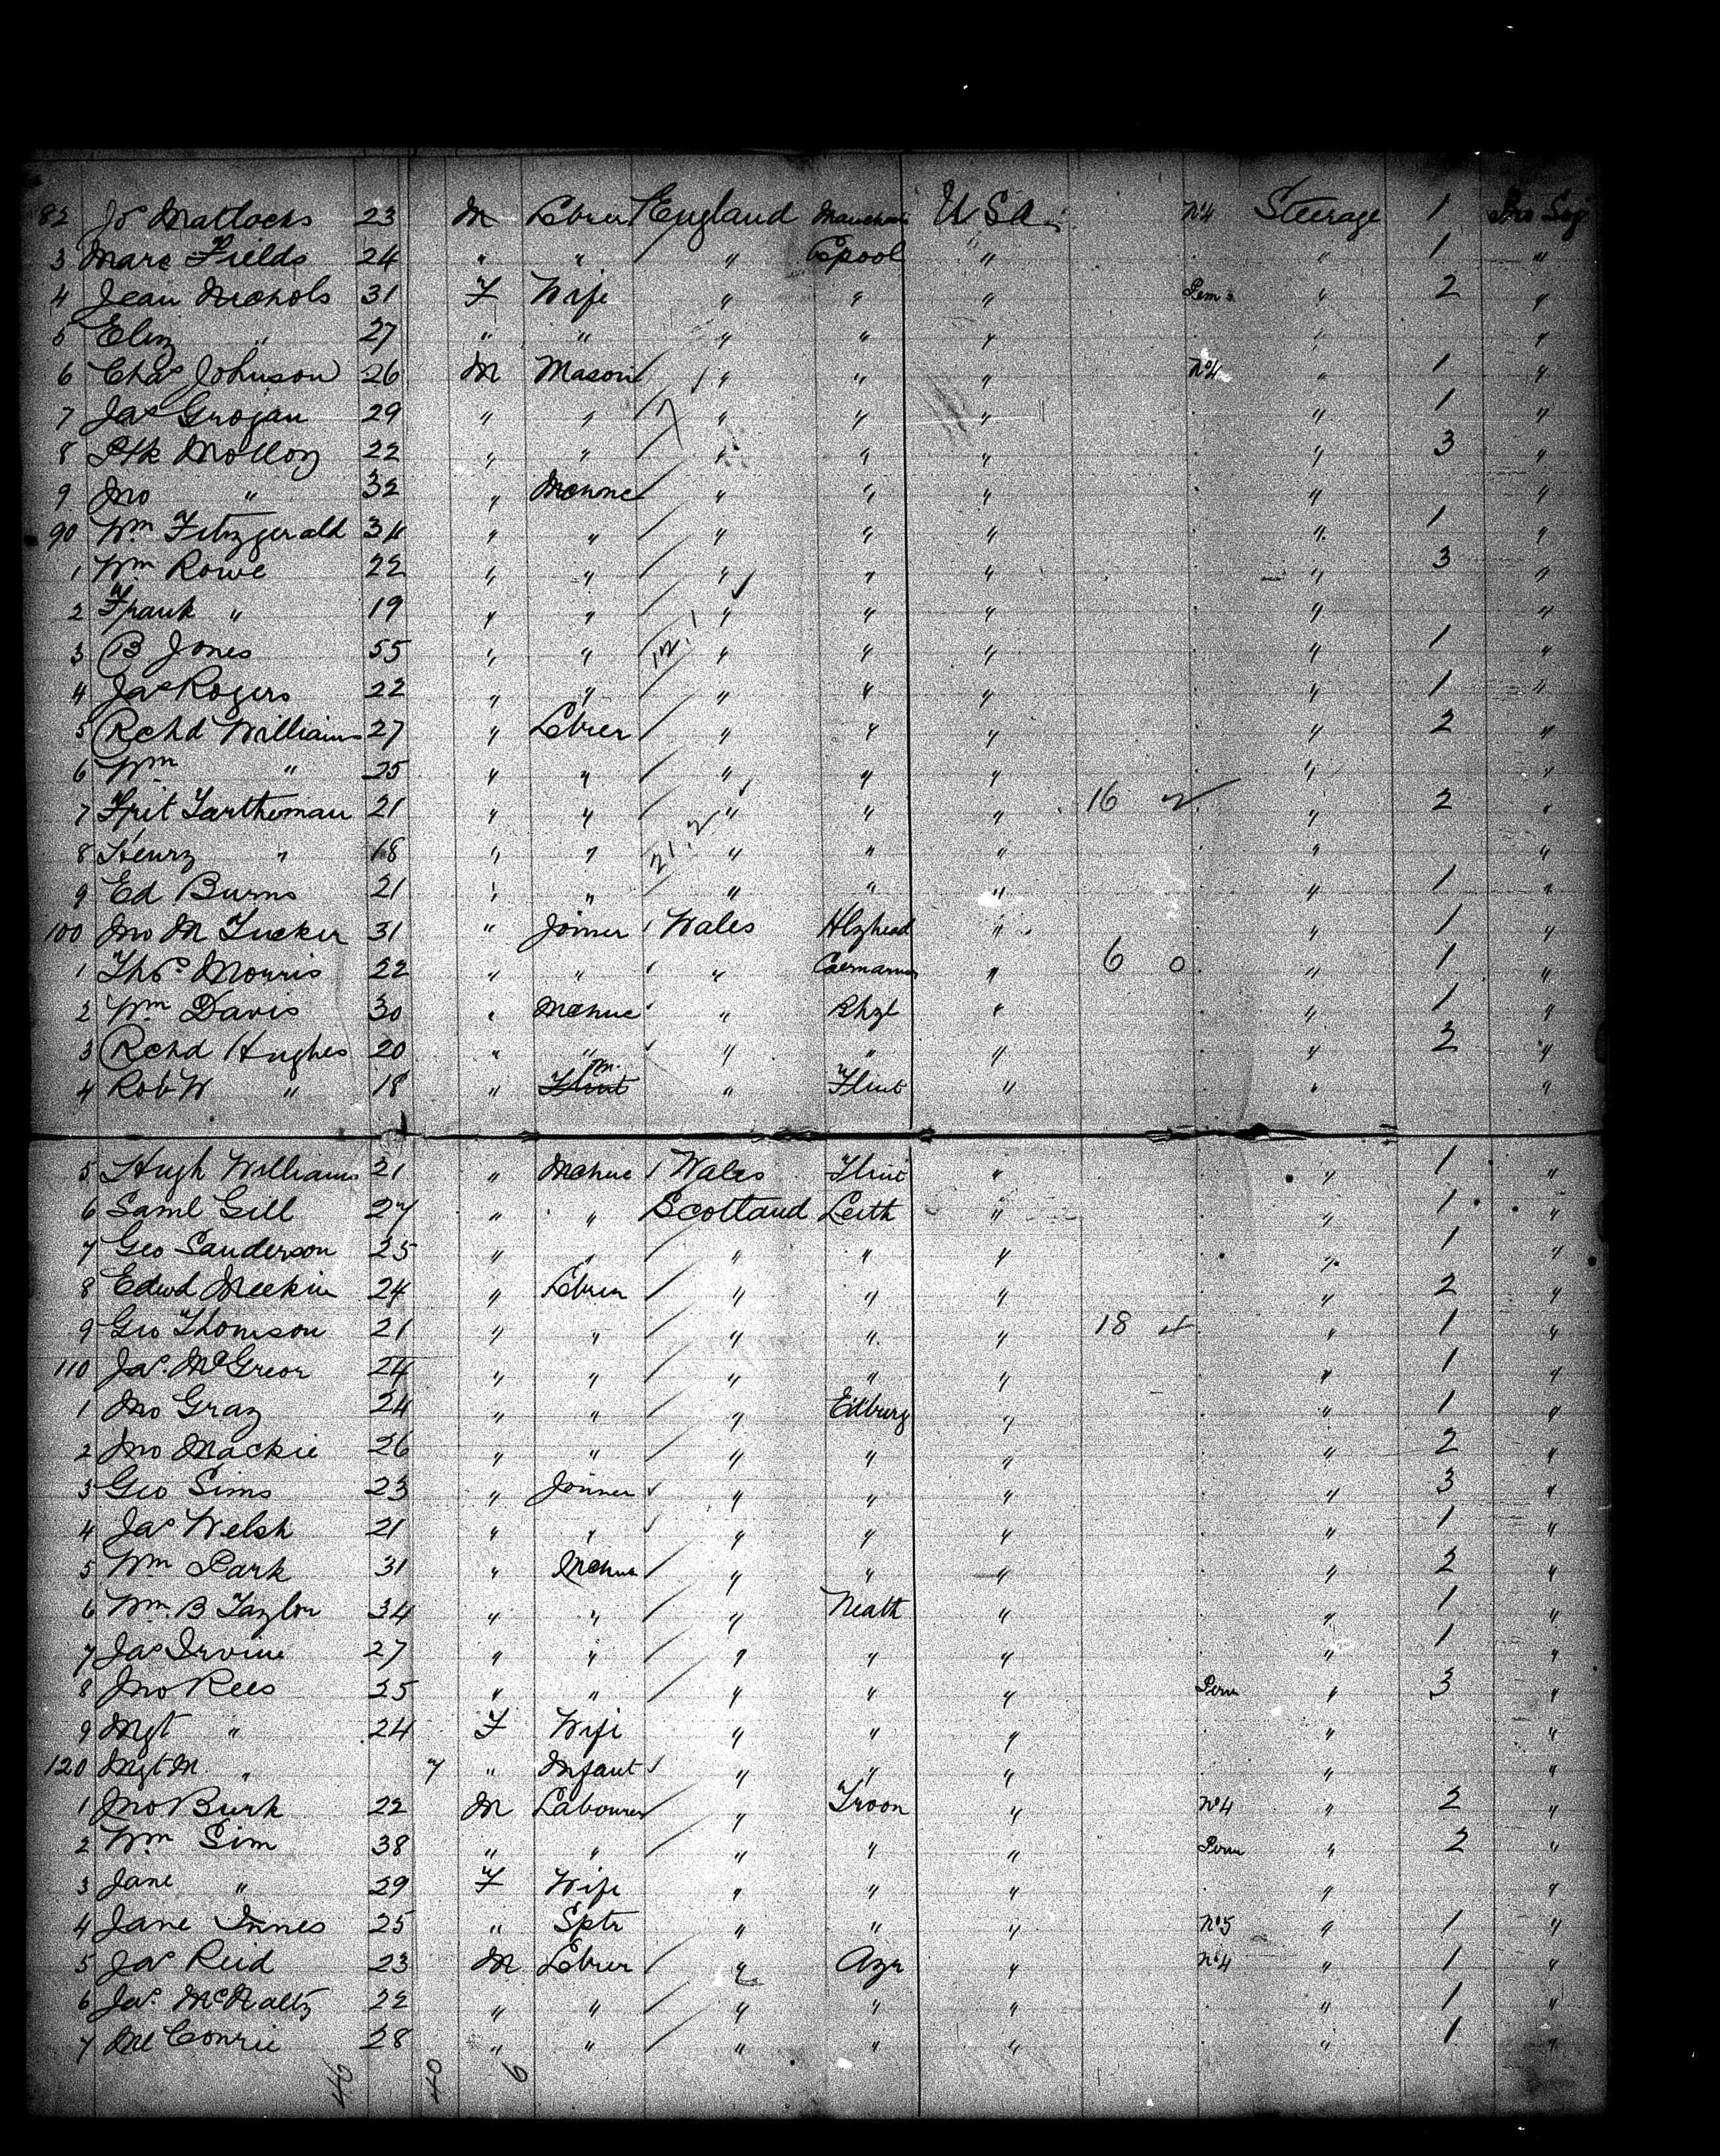 82 Jos Matlocks 23 M Lbrer England Manchest U S A. No4 Steerage 1 Pro Soj
3 Marc Fields 24 " " " Lpool " " 1 "
4 Jean Nichols 31 F Wife " " " " 2 "
5 Eliz " 27 " " " " " " "
6 Chas Johnson 26 M Mason " " " No4 " 1 "
7 Jas Grogan 29 " " " " " " 1 "
8 Ptk Molloy 22 " " " " " " 3 "
9 Jno " 32 " Mchnc " " " " "
90 Wm Fitzgerald 34 " " " " " " 1 "
1 Wm Rowe 22 " " " " " " 3 "
2 Frank " 19 " " " " " " "
3 B Jones 55 " " 12.1 " " " " 1 "
4 Jas Rogers 22 " " " " " " 1 "
5 Rchd Williams 27 " Lbrer " " " " 2 "
6 Wm " 25 " " " " " " "
7 Frit Tartheman 21 " " " " " 16 2 " 2 "
8 Henry " 18 " " 21.2 " " " " "
9 Ed Burns 21 " " " " " " 1 "
100 Jno M Tucker 31 " Joiner Wales Hlyhead " " 1 "
1 Thos Morris 22 " " " Caernarvon " 6 0 " 1 "
2 Wm Davis 30 " Mchnc " Rhyl " " 1 "
3 Rchd Hughes 20 " " " " " " 2 "
4 Robt W " 18 " Flint M. " Flint " " "
5 Hugh Williams 21 " Mchnc Wales Flint " " 1 "
6 Saml Gill 27 " " Scotland Leith " " 1 "
7 Geo Sanderson 25 " " " " " " 1 "
8 Edwd Meekin 24 " Lbrer " " " " 2 "
9 Geo Thomson 21 " " " " " 18 4 " 1 "
110 Jas. McGreor 24 " " " " " " 1 "
1 Jno Gray 24 " " " Edburg " " 1 "
2 Jno Mackie 26 " " " " " " 2 "
3 Geo Sims 23 " Joiner " " " " 3 "
4 Jas Welsh 21 " " " " " " 1 "
5 Wm Park 31 " Mchnc " " " " 2 "
6 Wm. B Taylor 34 " " " Neath " " 1 "
7 Jas Irvine 27 " " " " " " 1 "
8 Jno Rees 25 " " " " " " 3 "
9 Mgt " 24 F Wife " " " " "
120 Mgt M. " 7 " Infant " " " " "
1 Jno Burk 22 M Labourer " Troon " No4 " 2 "
2 Wm Sim 38 " " " " " " 2 "
3 Jane " 29 F Wife " " " " "
4 Jane Innes 25 " Sptr " " " No5 " 1 "
5 Jas Reid 23 M Lbrer " Ayr " No4 " 1 "
6 Jas. McNalty 22 " " " " " " 1 "
7 Ml Conrie 28 " " " " " " 1 "
40 40 6